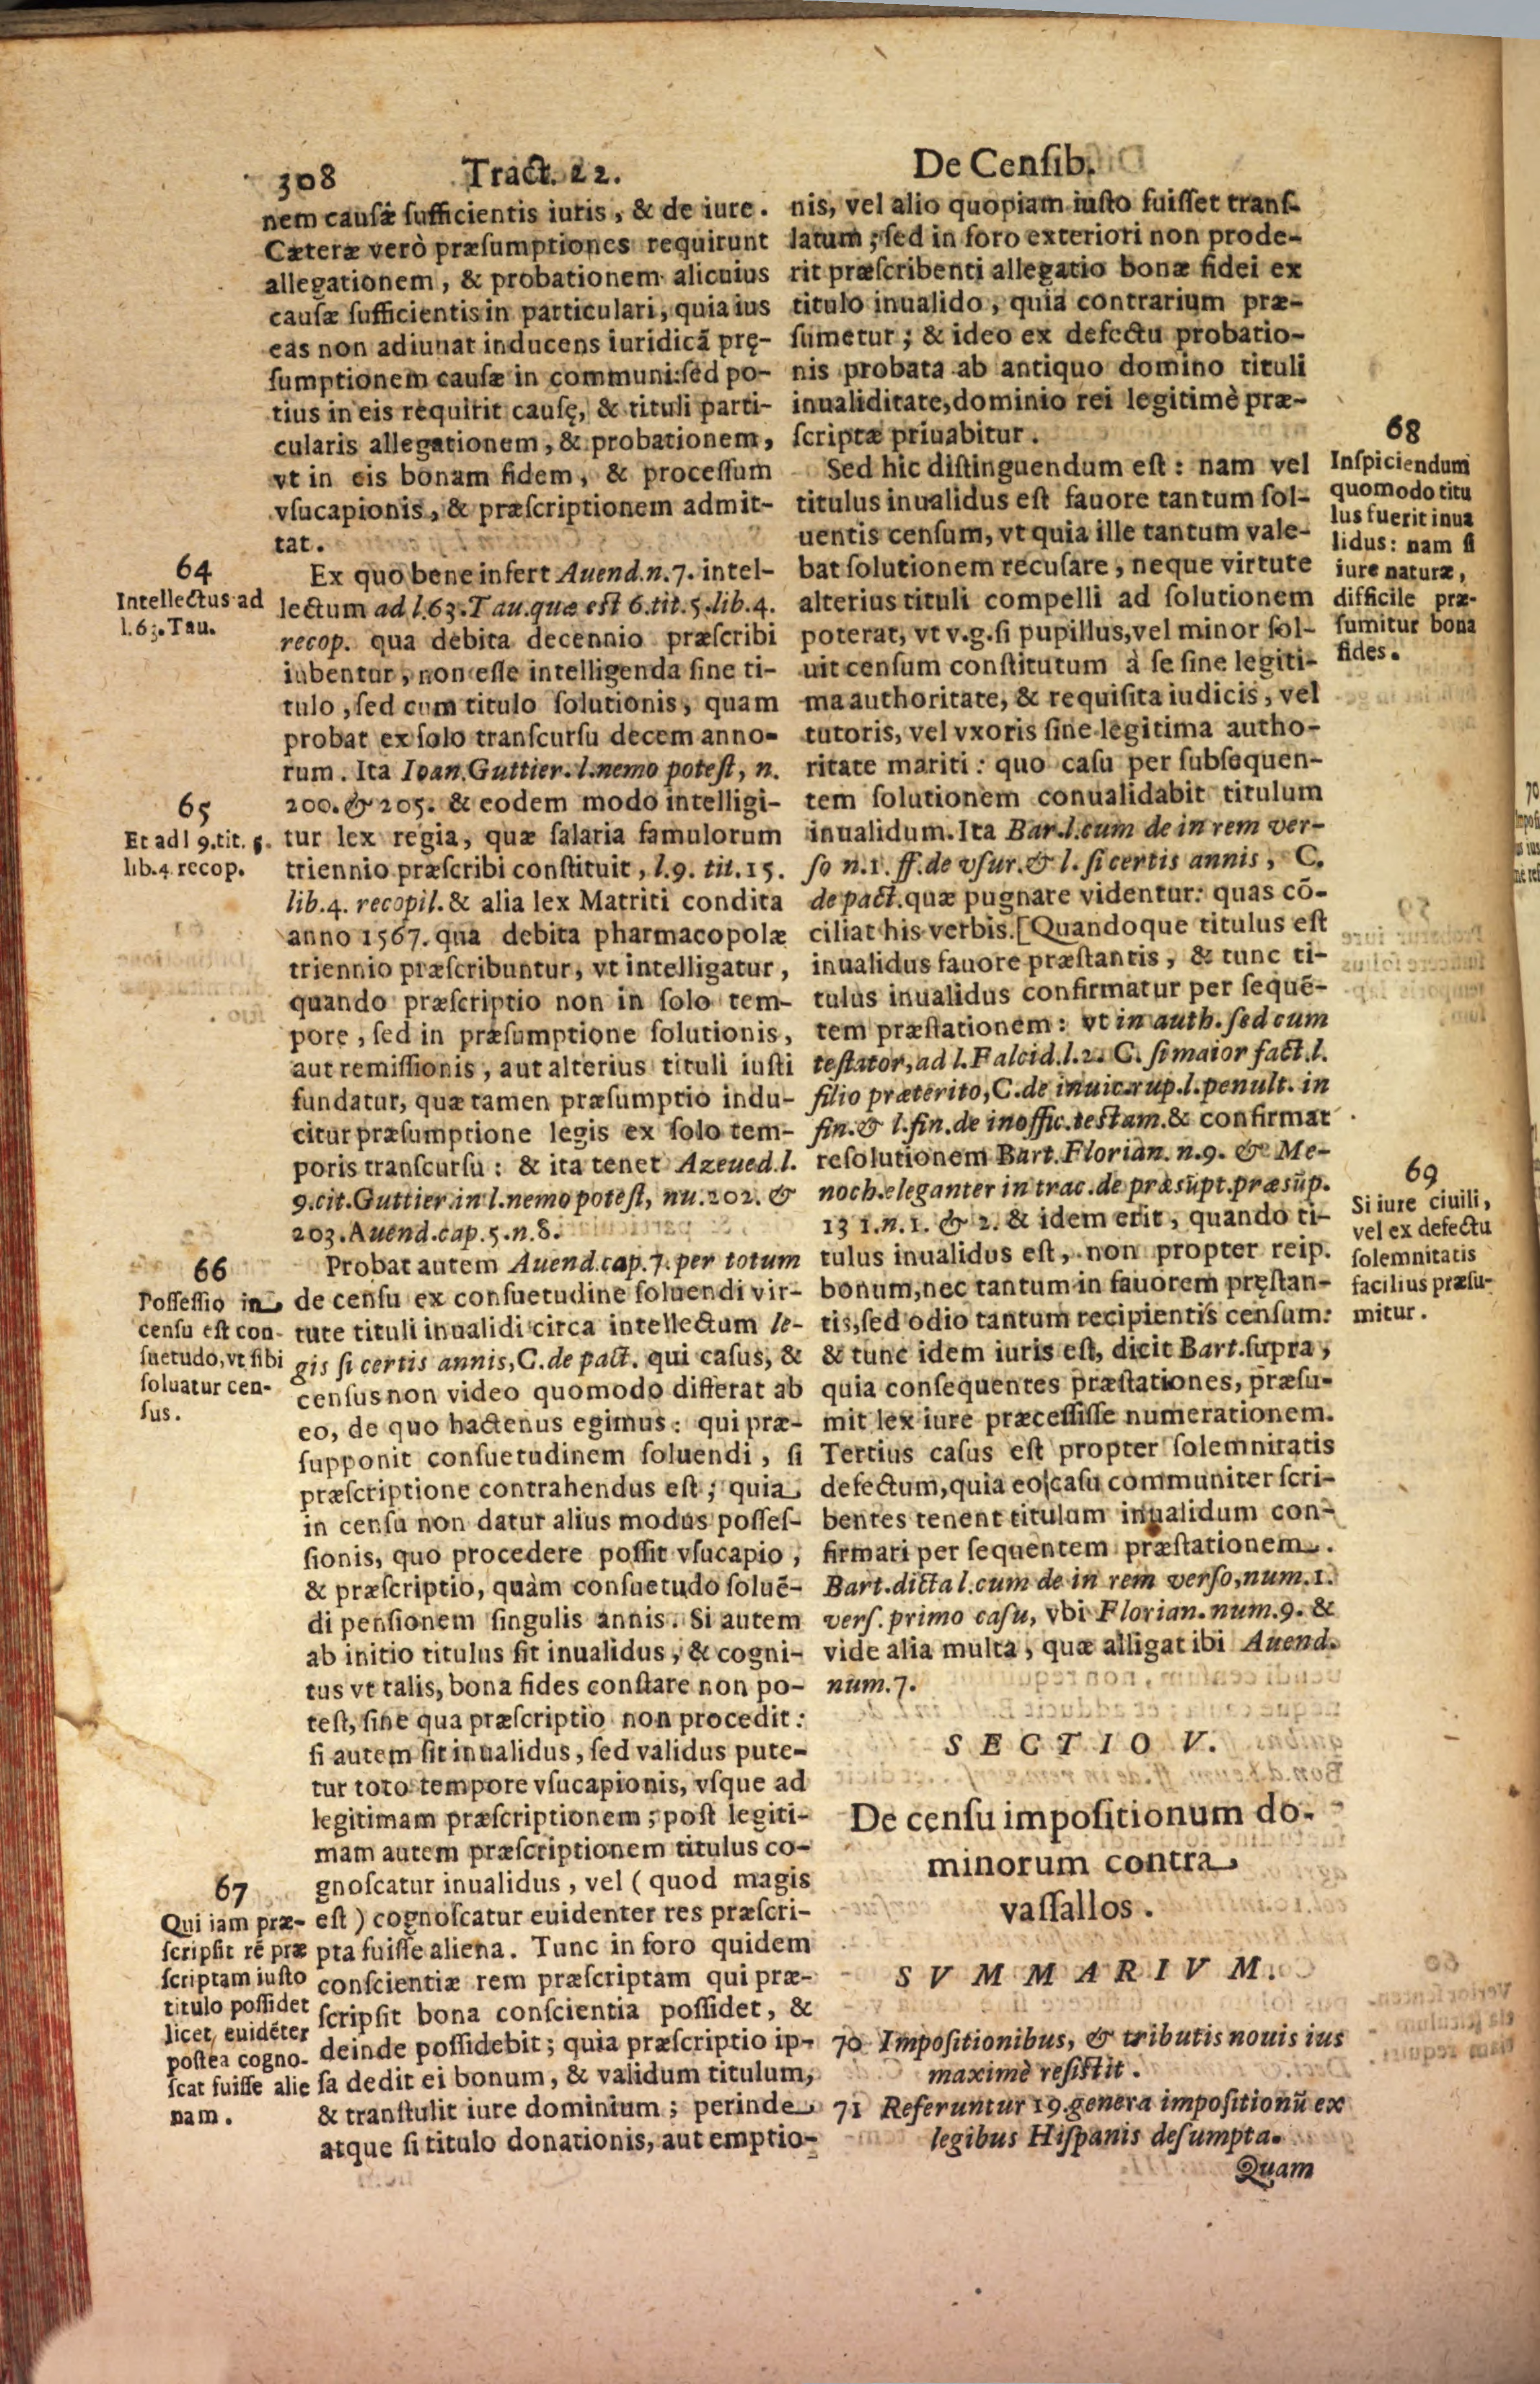 308 Tract. 22. De Censib.
nem causæ sufficientis iuris, & de iure.
Cæteræ verò præsumptiones requirunt
allegationem, & probationem alicuius
causæ sufficientis in particulari, quia ius
eas non adiuuat inducens iuridicā prę-
sumptionem causæ in communi: sed po-
tius in eis requirit causę, & tituli parti-
cularis allegationem, & probationem,
vt in eis bonam fidem, & processum
vsucapionis, & præscriptionem admit-
tat.
64
Intellectus ad
l.63.Tau.
Ex quo bene infert Auend.n.7. intel-
lectum ad l.63.Tau.quæ est 6.tit.5.lib.4.
recop. qua debita decennio præscribi
iubentur, non esse intelligenda sine ti-
tulo, sed cum titulo solutionis, quam
probat ex solo transcursu decem anno-
rum. Ita Ioan.Guttier.l.nemo potest, n.
200.& 205. & eodem modo intelligi-
65
Et ad l 9.tit. 5.
lib.4 recop.
tur lex regia, quæ salaria famulorum
triennio præscribi constituit, l.9. tit.15.
lib.4. recopil.& alia lex Matriti condita
anno 1567. qua debita pharmacopolæ
triennio præscribuntur, vt intelligatur,
quando præscriptio non in solo tem-
pore, sed in præsumptione solutionis,
aut remissionis, aut alterius tituli iusti
fundatur, quæ tamen præsumptio indu-
citur præsumptione legis ex solo tem-
poris transcursu: & ita tenet Azeued.l.
9.cit.Guttier.in l.nemo potest, nu.202. &
203.Auend.cap.5.n.8.
66
Possessio in
censu est con-
suetudo, vt sibi
soluatur cen-
sus.
Probat autem Auend.cap.7.per totum
de censu ex consuetudine soluendi vir-
tute tituli inualidi circa intellectum le-
gis si certis annis, C.de pact. qui casus, &
census non video quomodo differat ab
eo, de quo hactenus egimus: qui præ-
supponit consuetudinem soluendi, si
præscriptione contrahendus est; quia
in censu non datur alius modus posses-
sionis, quo procedere possit vsucapio,
& præscriptio, quàm consuetudo soluē-
di pensionem singulis annis. Si autem
ab initio titulus sit inualidus, & cogni-
tus vt talis, bona fides constare non po-
test, sine qua præscriptio non procedit:
si autem sit inualidus, sed validus pute-
tur toto tempore vsucapionis, vsque ad
legitimam præscriptionem; post legiti-
mam autem præscriptionem titulus co-
gnoscatur inualidus, vel (quod magis
67
Qui iam præ-
scripsit rē præ
scriptam iusto
titulo possidet
licet, euidēter
postea cogno-
scat fuisse alie
nam.
est) cognoscatur euidenter res præscri-
pta fuisse aliena. Tunc in foro quidem
conscientiæ rem præscriptam qui præ-
scripsit bona conscientia possidet, &
deinde possidebit; quia præscriptio ip-
sa dedit ei bonum, & validum titulum,
& transtulit iure dominium; perinde
atque si titulo donationis, aut emptio-
nis, vel alio quopiam iusto fuisset trans-
latum; sed in foro exteriori non prode-
rit præscribenti allegatio bonæ fidei ex
titulo inualido, quia contrarium præ-
sumetur; & ideo ex defectu probatio-
nis probata ab antiquo domino tituli
inualiditate, dominio rei legitimè præ-
scriptæ priuabitur.
68
Inspiciendum
quomodo titu
lus fuerit inua
lidus: nam si
iure naturæ,
difficile præ-
sumitur bona
fides.
Sed hic distinguendum est: nam vel
titulus inualidus est fauore tantum sol-
uentis censum, vt quia ille tantum vale-
bat solutionem recusare, neque virtute
alterius tituli compelli ad solutionem
poterat, vt v.g.si pupillus, vel minor sol-
uit censum constitutum à se sine legiti-
ma authoritate, & requisita iudicis, vel
tutoris, vel vxoris sine legitima autho-
ritate mariti: quo casu per subsequen-
tem solutionem conualidabit titulum
inualidum. Ita Bar.l.cum de in rem ver-
so n.1. ff.de vsur.& l. si certis annis, C.
de pact.quæ pugnare videntur: quas cō-
ciliat his verbis.[Quandoque titulus est
inualidus fauore præstantis, & tunc ti-
tulus inualidus confirmatur per sequē-
tem præstationem: vt in auth. sed cum
testator, ad l.Falcid.l.2. C. si maior fact.l.
filio præterito, C.de inuic.rup.l.penult. in
fin.& l.fin.de inoffic.testam.& confirmat
resolutionem Bart.Florian. n.9. & Me-
noch.eleganter in trac.de præsūpt.præsūp.
131.n.1. & 2. & idem erit, quando ti-
69
Si iure ciuili,
vel ex defectu
solemnitatis
facilius præsu-
mitur.
tulus inualidus est, non propter reip.
bonum, nec tantum in fauorem pręstan-
tis, sed odio tantum recipientis censum:
& tunc idem iuris est, dicit Bart.supra,
quia consequentes præstationes, præsu-
mit lex iure præcessisse numerationem.
Tertius casus est propter solemnitatis
defectum, quia eo casu communiter scri-
bentes tenent titulum inualidum con-
firmari per sequentem præstationem.
Bart.dicta l.cum de in rem verso, num.1.
vers. primo casu, vbi Florian.num.9. &
vide alia multa, quæ alligat ibi Auend.
num.7.
SECTIO V.
De censu impositionum do-
minorum contra
vassallos.
SVMMARIVM.
70 Impositionibus, & tributis nouis ius
maximè resistit.
71 Referuntur 19.genera impositionū ex
legibus Hispanis desumpta.
Quam